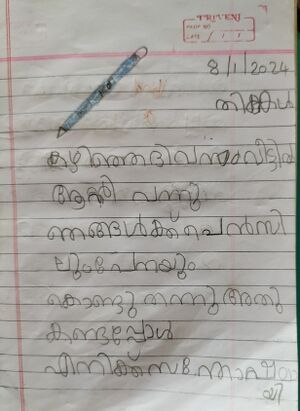 TRIVENI
PAGE NO
DATE / / /
8/1/2024
തിങ്കൾ
കഴിഞ്ഞദിവസംവീട്ടിൽ
ആന്റി വന്നു
ഞങ്ങൾക്ക് പെൻസി
ലുംപേനയും
കൊണ്ടു തന്നു അതു
കണ്ടപ്പോൾ
എനിക്ക് സന്തോഷമാ
യി